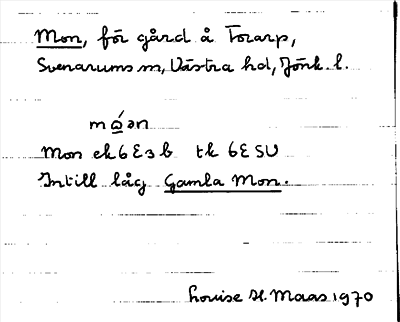 Mon, för gård å Torarp,
Svenarums sn, Västra hd, Jönk. l.
mó̲ən
Mon ek 6E3b tk 6E SV
Intill låg Gamla Mon.
Louise H. Maas 1970